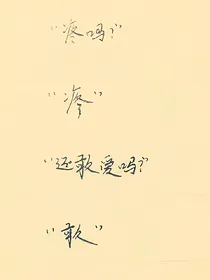 “疼吗?”
“疼”
“还敢爱吗?”
“敢”